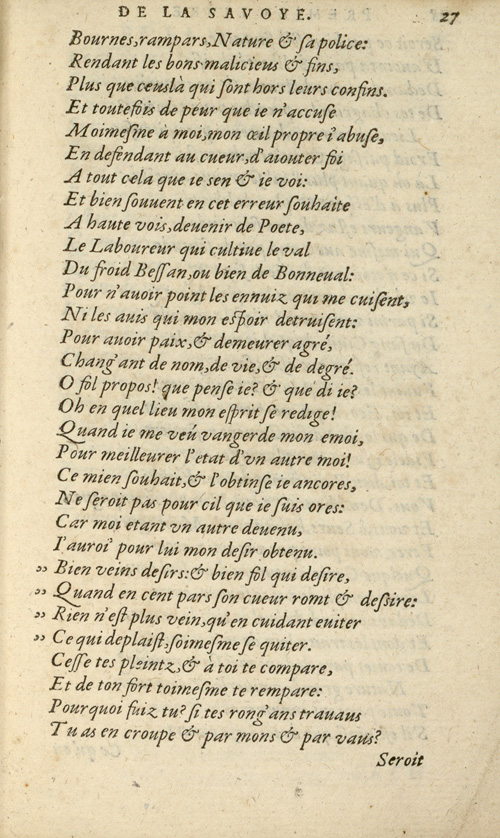 DE LA SAVOYE. 27
Bournes, rampars, Nature & sa police:
Rendant les bons malicieus & fins,
Plus que ceuslà qui sont hors leurs confins.
Et toutefois de peur que ie n'accuse
Moimesme à moi, mon œil propre i'abuse,
En defendant au cueur, d'aiouter foi
A tout cela que ie sen & ie voi:
Et bien souuent en cet erreur souhaite
A haute vois, deuenir de Poete,
Le Laboureur qui cultiue le val
Du froid Bessan, ou bien de Bonneval:
Pour n'auoir point les ennuiz qui me cuisent,
Ni les auis qui mon espoir detruisent:
Pour auoir paix, & demeurer agré,
Chang'ant de nom, de vie, & de degré.
O fol propos! que pense ie? & que di ie?
Oh en quel lieu mon esprit se redige!
Quand ie me veù vanger de mon emoi,
Pour meilleurer l'etat d'vn autre moi!
Ce mien souhait, & l'obtinse ie ancores,
Ne seroit pas pour cil que ie suis ores:
Car moi etant vn autre deuenu,
I'auroi pour lui mon desir obtenu.
›› Bien veins desirs: & bien fol qui desire,
›› Quand en cent pars son cueur romt & dessire:
›› Rien n'est plus vein, qu'en cuidant euiter
›› Ce qui deplaist, soimesme se quiter.
Cesse tes pleintz, & à toi te compare,
Et de ton sort toimesme te rempare:
Pourquoi fuiz tu? si tes rong'ans trauaus
Tu as en croupe & par mons & par vaus?
Seroit